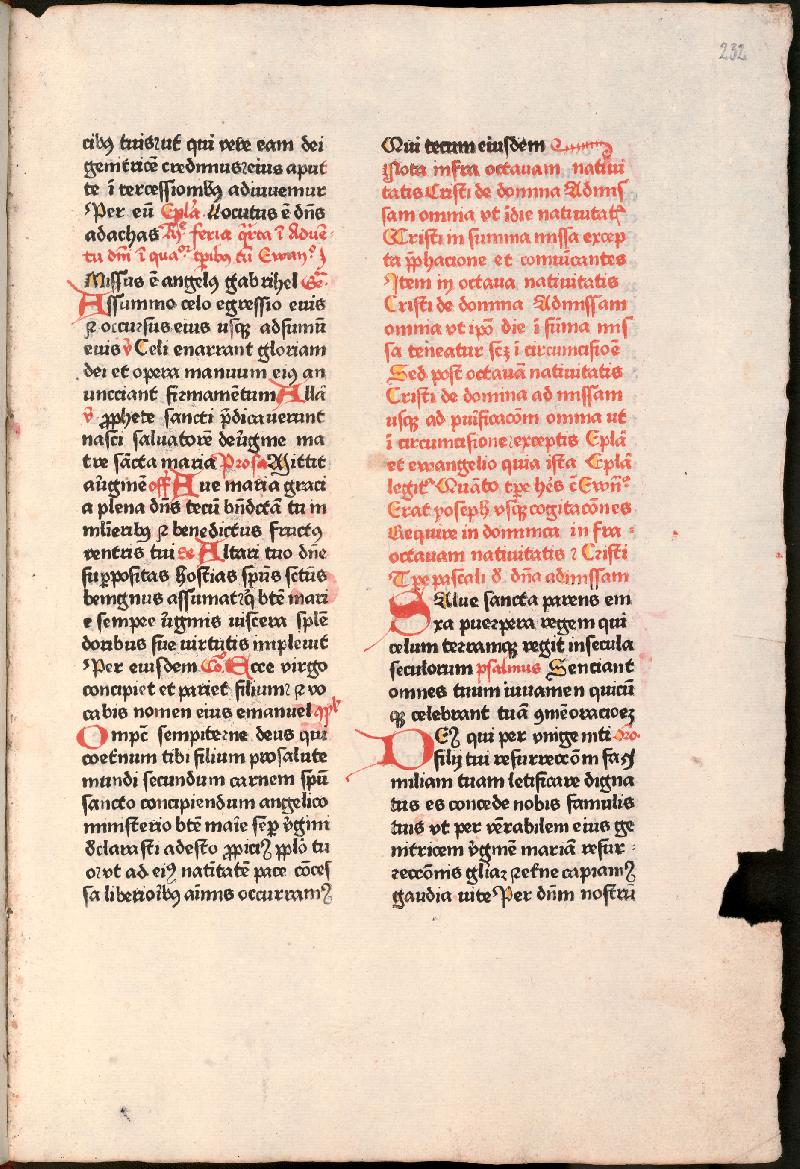 232
cibꝯ tuis: ut qui vere eam dei
genitricē credimus: eius aput
te ītercessionibꝯ adiuuemur
Per eū Epl̄a Locutus ē dn̄s
adachas R̄ feria q̄rta ī Aduē
tu dn̄i ī quaʳ tp̄ibꝯ tū Ewanᵐ
Missus ē angelꝯ gabrihel
Assummo celo egressio euis
⁊ occursus eius usqꝫ adsumū
euis v̄ Celi enarrant gloriam
dei et opera manuum eiꝯ an
uncciant firmamentum Allā
v̄ ꝓphete sancti p̄dicauerunt
nasci saluatorē de v̄gine ma
tre sācta maria Prosa Mittit
ad v̄ginē off̄ Aue maria graci
a plena dn̄s tecū bn̄dct̄a tu in
ml̄ieribꝯ ⁊ benedictus fructꝯ
ventris tui Se Altari tuo dn̄e
suꝑpositas hostias sp̄us sct̄us
beingnus assumat: q̄ bt̄e mari
e sempre v̄gīnis uiscera splē
doribus sue virtutis impleuit
Per eiusdem Co. Ecce virgo
concipiet et pariet filium: ⁊ vo
cabis nomen eius emanuel ꝯpl̄
Omp̄c̄ sempiterne deus qui
coetnum tibi filium pro salute
mundi secundum carnem sp̄ū
sancto concipiendum angelico
ministerio bt̄e maīe sēꝑ v̄gini
declarasti adesto ꝓpiciꝯ ppl̄o tu
o: vt ad eiꝯ natitatē pace cōces
sa liberioribꝯ aīmis occurramꝯ
Qui tecum eiusdem
Nota infra octauam natiui
tatis Cristi de domina Admis
sam omnia vt īdie natiuitatꝭ
Cristi in summa missa excep
ta p̄phacione et comūcantes
Item in octaua natiuitatis
Cristi de domina Admissam
omnia vt ip̄o die ī sūma mis
sa teneatur scꝫ ī circumcisioē
Sed post octauā natiuitatis
Cristi de domina ad missam
usqꝫ ad puificacōm omnia ut
ī circumcisione: exceptis Epl̄ā
et ewangelio quia ista Epl̄ā
legit᷑ Quāto tp̄e hēs ē Ewn̄
Erat yoseph vsqꝫ cogitacōnes
Require in dominica in fra
octauam natiuitatis ⁊ Cristi
Tp̄e pascali d̄ dn̄a admissam
Salue sancta parens em
xa puerpera regem qui
celum terramqꝫ regit insecula
seculorum psalmus Senciant
omnes tuum iuuamen quicū
qꝫ celebrant tuā ꝯmēoracioeꝫ
Deꝯ qui per vnigeniti Oro.
filij tui resurreccōm fa
miliam tuam letificare digna
tus es concede nobis famulis
tuis vt per vēr̄abilem eius ge
nitricem v̄gīnē mariā resur-
reccōnis gl̄iaꝫ: et̄ne capiamꝯ
gaudia uite Per dn̄m nostrū